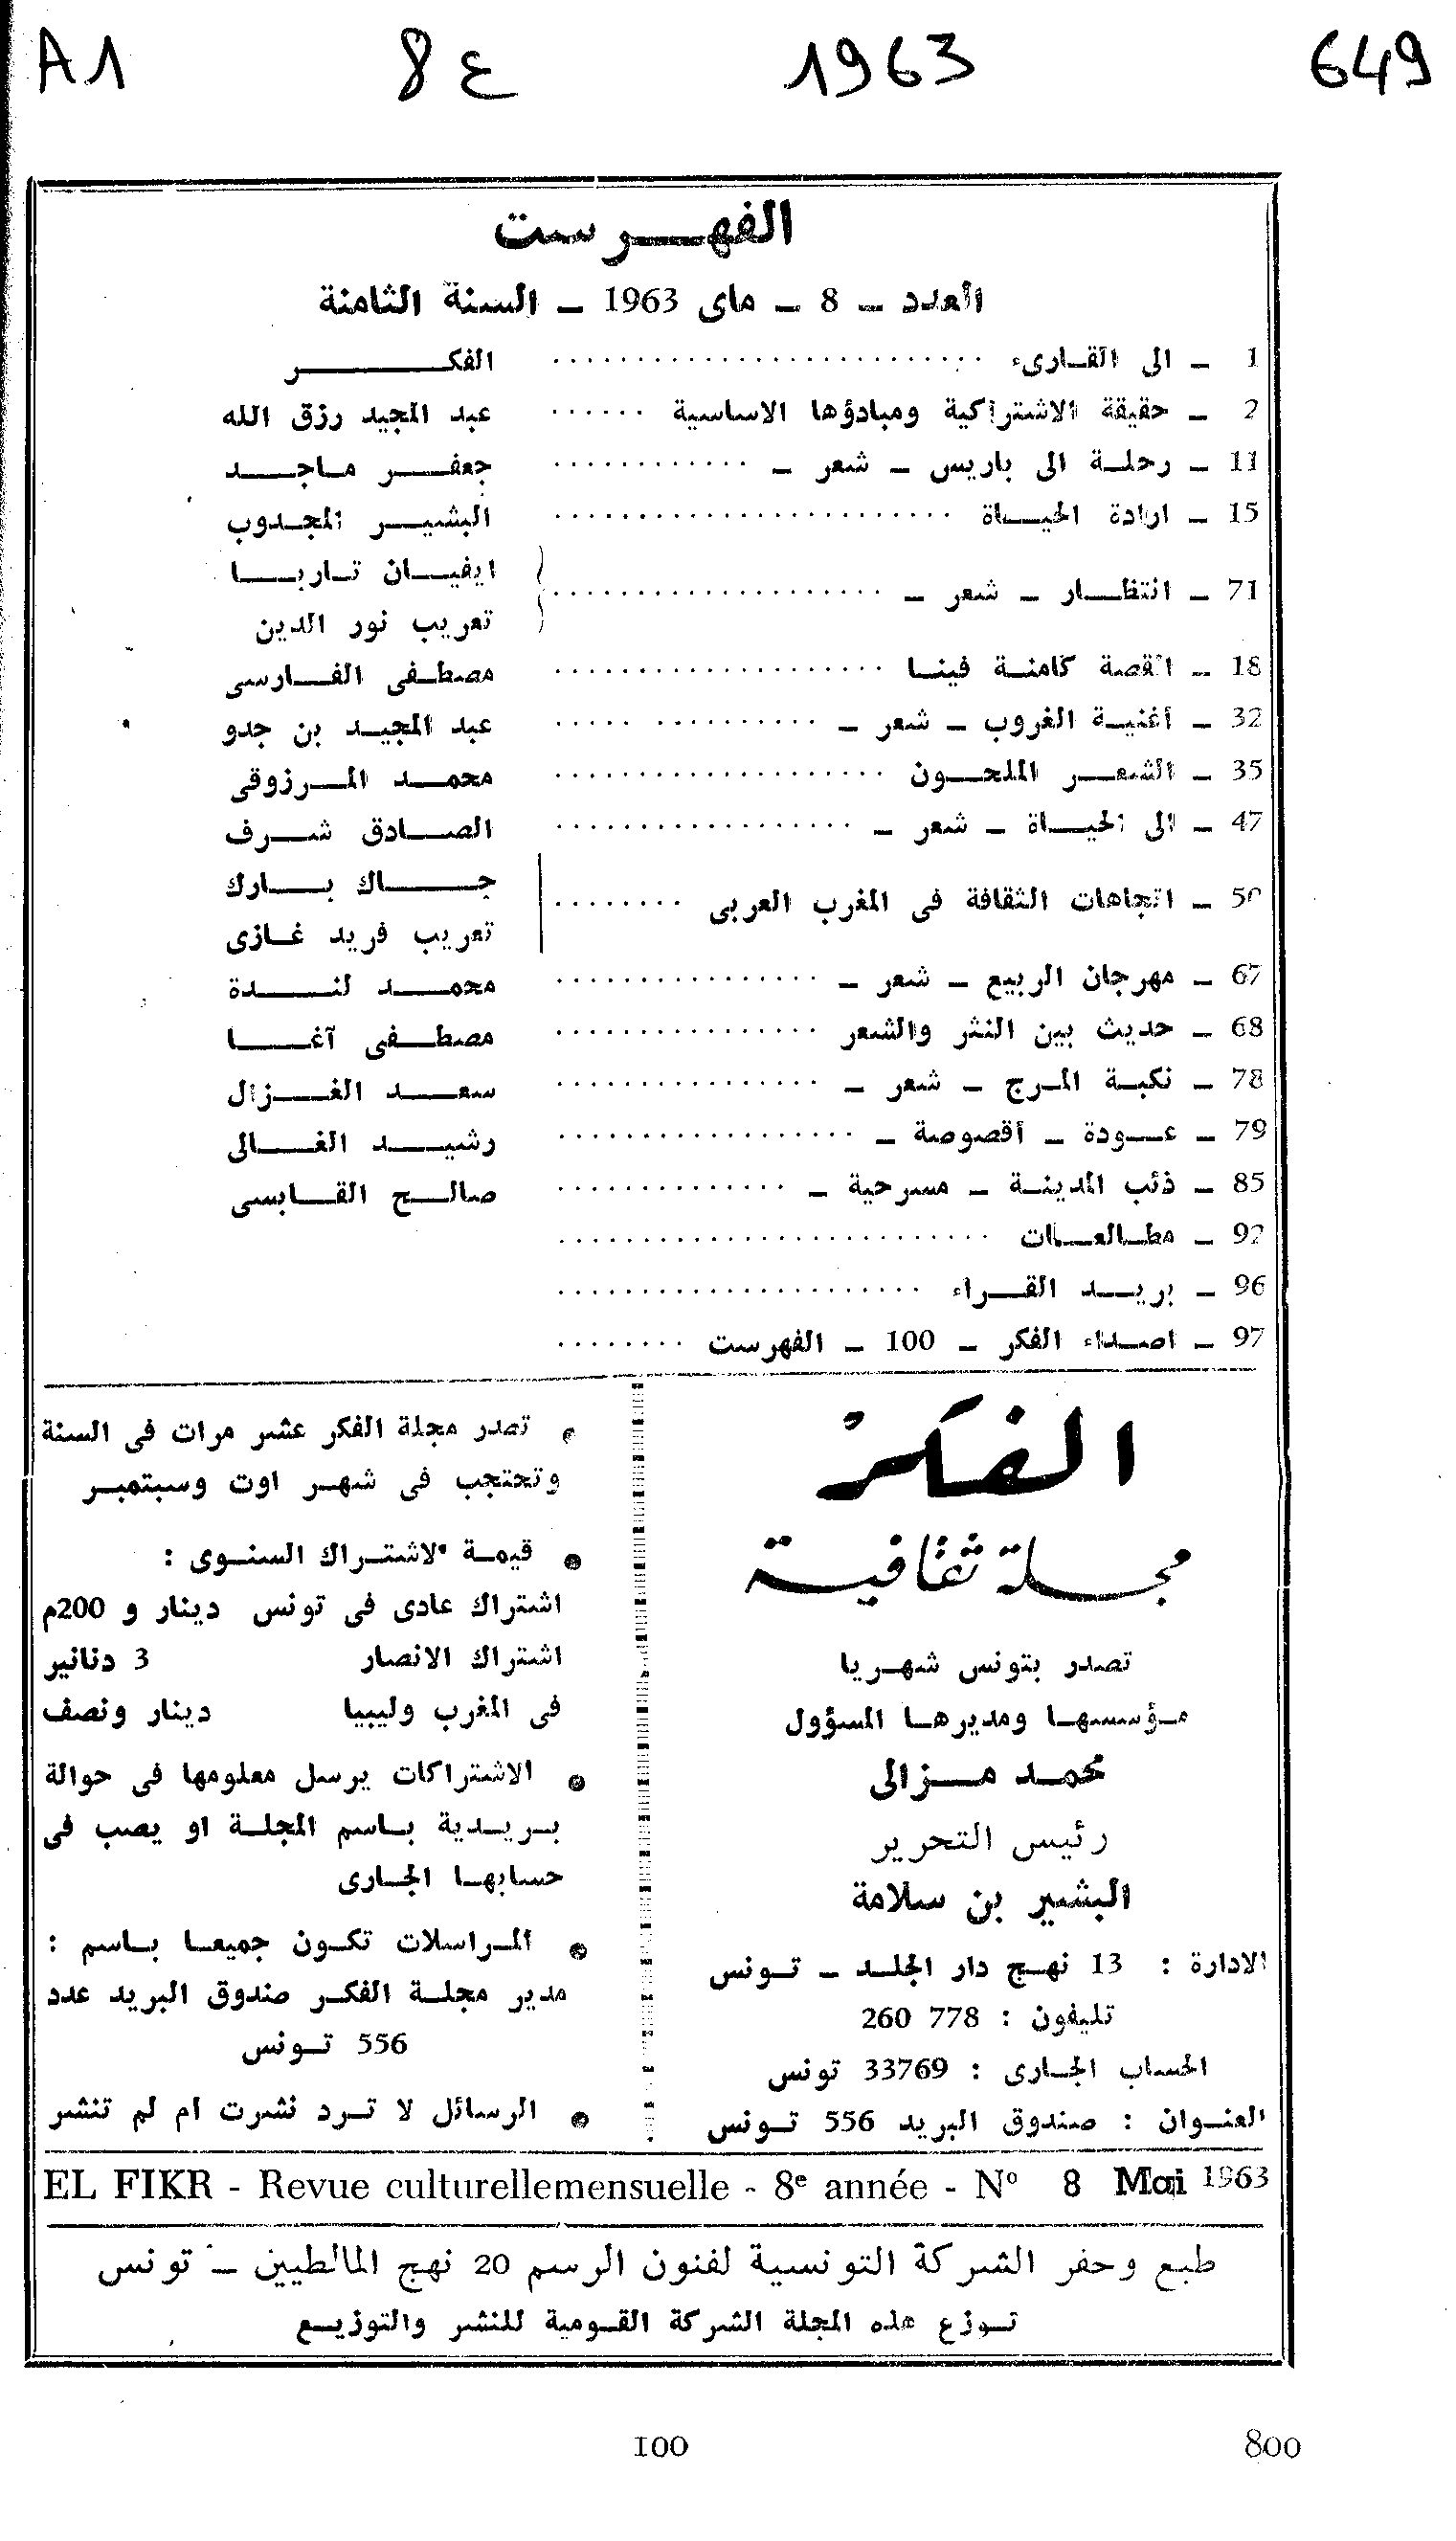 A1 8ع 1963 649
الفهرست
العدد - 8 - ماى 1963 - السنة الثامنة
1 - الى القارىء .......... الفكر
2 - حقيقة الاشتراكية ومبادؤها الاساسية ...... عبد المجيد رزق الله
11 - رحلة الى باريس - شعر - .......... جعفر ماجد
15 - ارادة الحياة .......... البشير المجدوب
71 - انتظار - شعر - .......... ايفيان تاربا
تعريب نور الدين
18 - القصة كامنة فينا .......... مصطفى الفارسى
32 - أغنية الغروب - شعر - .......... عبد المجيد بن جدو
35 - الشعر الملحون .......... محمد المرزوقى
47 - الى الحياة - شعر - .......... الصادق شرف
50 - اتجاهات الثقافة فى المغرب العربى ........ جاك بارك
تعريب فريد غازى
67 - مهرجان الربيع - شعر - .......... محمد لندة
68 - حديث بين النثر والشعر .......... مصطفى آغا
78 - نكبة المرج - شعر - .......... سعد الغزال
79 - عودة - أقصوصة - .......... رشيد الغالى
85 - ذئب المدينة - مسرحية - .......... صالح القابسى
92 - مطالعات ..........
96 - بريد القراء ..........
97 - اصداء الفكر - 100 - الفهرست ........
الفكر
مجلة ثقافية
تصدر بتونس شهريا
مؤسسها ومديرها المسؤول
محمد مزالى
رئيس التحرير
البشير بن سلامة
الادارة : 13 نهج دار الجلد - تونس
تليفون : 778 260
الحساب الجارى : 33769 تونس
العنوان : صندوق البريد 556 تونس
• تصدر مجلة الفكر عشر مرات فى السنة
وتحتجب فى شهر اوت وسبتمبر
• قيمة الاشتراك السنوى :
اشتراك عادى فى تونس دينار و 200م
اشتراك الانصار 3 دنانير
فى المغرب وليبيا دينار ونصف
• الاشتراكات يرسل معلومها فى حوالة
بريدية باسم المجلة او يصب فى
حسابها الجارى
• المراسلات تكون جميعا باسم :
مدير مجلة الفكر صندوق البريد عدد
556 تونس
• الرسائل لا ترد نشرت ام لم تنشر
EL FIKR - Revue culturellemensuelle - 8e année - No 8 Mai 1963
طبع وحفر الشركة التونسية لفنون الرسم 20 نهج المالطيين - تونس
توزع هذه المجلة الشركة القومية للنشر والتوزيع
100 800